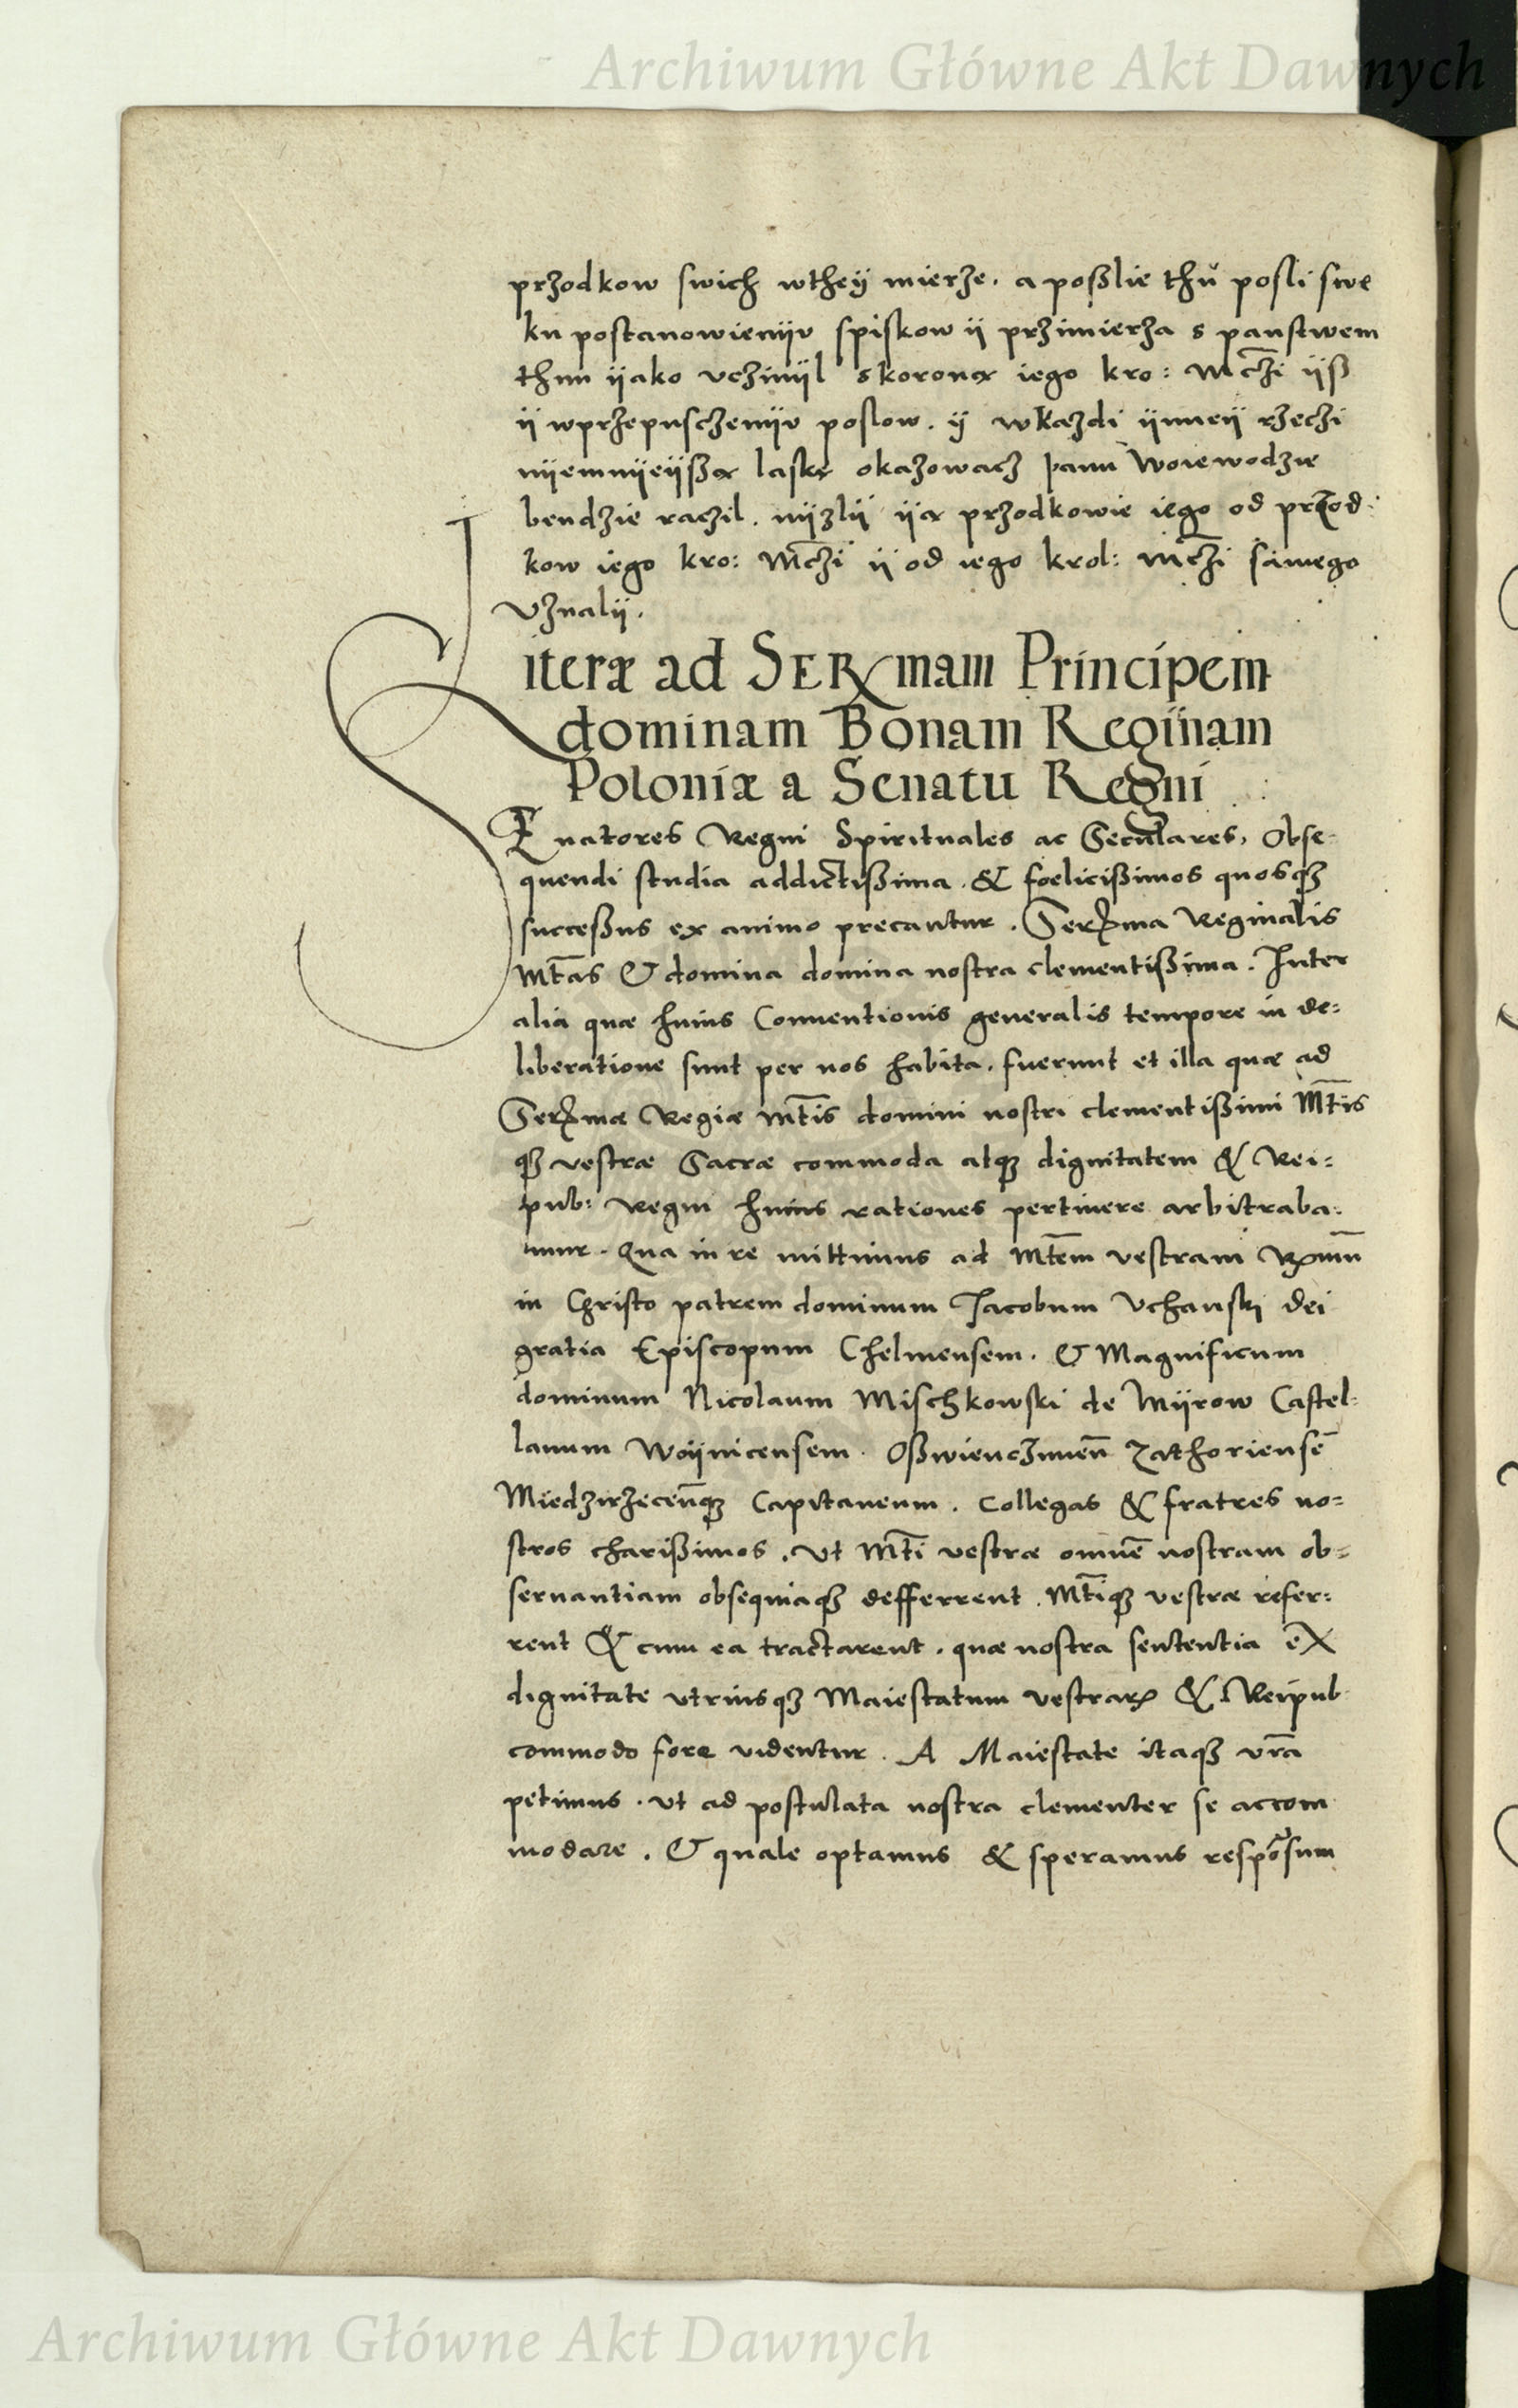 Archiwum Główne Akt Dawnych
przodkow swich wtheÿ mierze. a poßlie thŭ posli swe
ku postanowienÿu spiskow ÿ przimierza s panstwem
thim ÿako vczinÿl skoroną iego kro: Mczi ÿß
ÿ wprzepusczenÿu poslow. ÿ wkazdi ÿnneÿ rzeczi
nÿemnÿeÿßą laskę okazowacz panu Woiewodzie
bendzie raczil. nÿzlÿ ÿą przodkowie iego od przod:
kow iego kro: Mczi ÿ od iego krol: Mczi samego
vznalÿ.
Literæ ad SERmam Principem
dominam Bonam Reginam
Poloniæ a Senatu Regni
Senatores Regni Spirituales ac Seculares, Obse-
quendi studia addictißima. & foelicißimos quosqꝫ
succeßus ex animo precantur. Serma Reginalis
Mtas & domina domina nostra clementißima. Inter
alia quæ huius Conuentionis generalis tempore in de:
liberatione sunt per nos habita. fuerunt et illa quæ ad
Sermæ Regiæ Mtis domini nostri clementißimi Mtis
qꝫ vestræ Sacræ commoda atqꝫ dignitatem & Rei:
pub: Regni huius rationes pertinere arbitraba:
mur. Qua in re mittimus ad Mtem vestram Rmum
in Christo patrem dominum Jacobum Vchanski dei
gratia Episcopum Chelmensem. & Magnificum
dominum Nicolaum Mischkowski de Mÿrow Castel:
lanum Woÿnicensem. Oßwienczimeñ Zathoriensē
Miedzirzeceñqꝫ Capitaneum. Collegas & fratres no:
stros charißimos. Vt Mti vestræ omnē nostram ob:
seruantiam obsequiaqꝫ defferrent. Mtiqꝫ vestræ refer:
rent & cum ea tractarent. quæ nostra sententia ex
dignitate vtriusqꝫ Maiestatum vestrarꝝ & Reipub
commodo fore videntur. A Maiestate itaqꝫ vr̃a
petimus. vt ad postulata nostra clementer se accom
modare. & quale optamus & speramus respõsum
Archiwum Główne Akt Dawnych